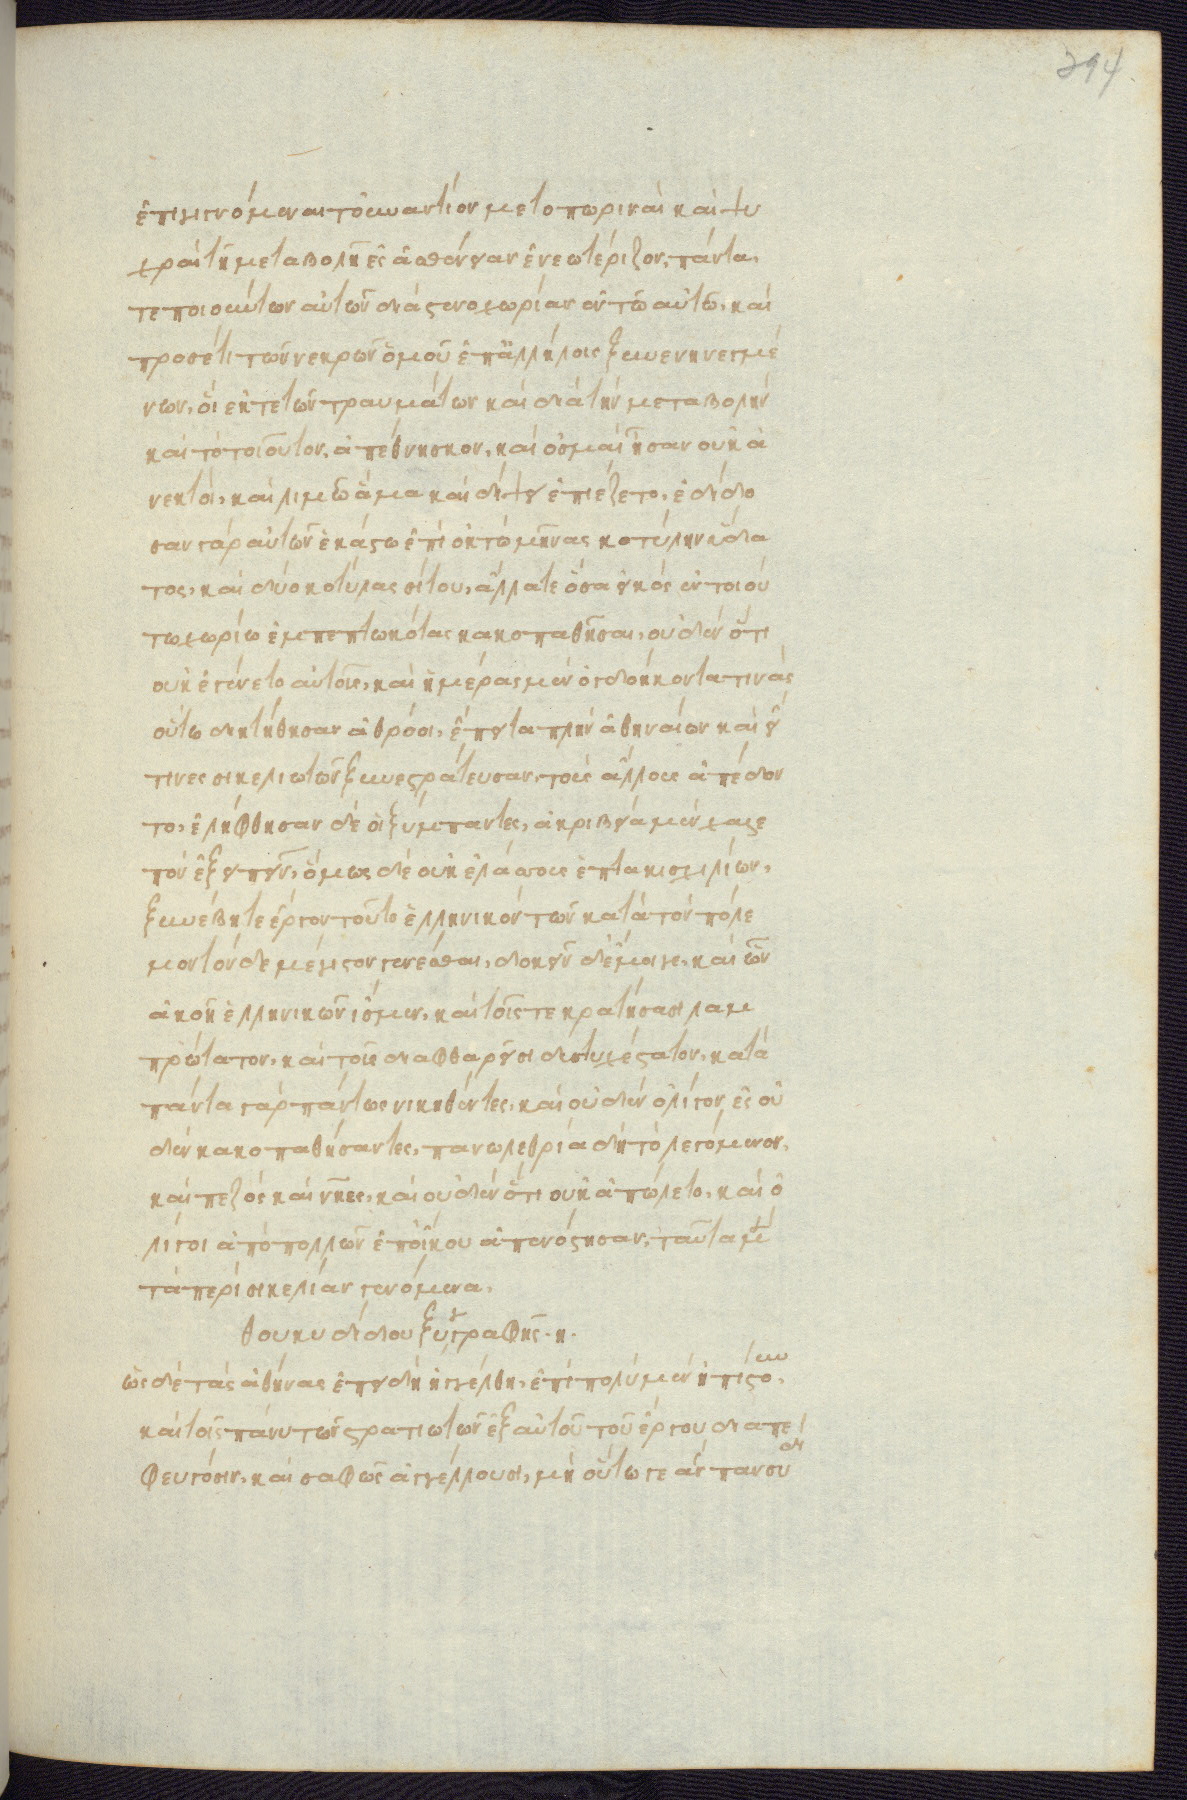 294
ἐπιγιγνόμεναι τοὐναντίον μετοπωριναὶ καὶ ψυ
χραὶ τῆ μεταβολῆ ἐς ἀσθένειαν ἐνεωτέριζον, πάντα
τε ποιούντων αὐτῶν διὰ στενοχωρίαν ἐν τῶ αὐτῶ, καὶ
προσέτι τῶν νεκρῶν ὁμοῦ ἐπ' ἀλλήλοις ξυννενημέ
νων, οἳ ἐκ τε τῶν τραυμάτων καὶ διὰ τὴν μεταβολὴν
καὶ τὸ τοιοῦτον, ἀπέθνησκον, καὶ ὀσμαὶ ἦσαν οὐκ ἀ
νεκτοὶ, καὶ λιμῶ ἅμα καὶ δίψει ἐπιέζετο, ἐδίδο
σαν γὰρ αὐτῶν ἑκάστω ἐπὶ ὀκτὼ μῆνας κοτύλην ὕδα
τος, καὶ δύο κοτύλας σίτου, ἄλλα τε ὅσα εἰκὸς ἐν τοιού
τω χωρίω ἐμπεπτωκότας κακοπαθῆσαι, οὐδὲν ὅτι
οὐκ ἐγένετο αὐτοῖς, καὶ ἡμέρας μὲν ἑβδομήκοντα τινὰς
οὕτω διητήθησαν ἀθρόοι, ἔπειτα πλὴν ἀθηναίων καὶ εἴ
τινες σικελιωτῶν ξυνεστράτευσαν, τοὺς ἄλλους ἀπέδον
το, ἐλήφθησαν δὲ οἱ ξύμπαντες, ἀκριβεία μὲν χαλε
πὸν ἐξειπεῖν, ὅμως δὲ οὐκ ἐλάσσους ἑπτακισχιλίων,
ξυνέβη τε ἔργον τοῦτο ἑλληνικὸν τῶν κατὰ τὸν πόλε
μον τόνδε μέγιστον γενέσθαι, δοκεῖν δ' ἔμοιγε, καὶ ὧν
ἀκοῆ ἑλληνικῶν ἴσμεν, καὶ τοῖς τε κρατήσασι λαμ
πρότατον, καὶ τοῖς διαφθαρεῖσι δυστυχέστατον, κατὰ
πάντα γὰρ πάντως νικηθέντες, καὶ οὐδὲν ὀλίγον ἐς οὐ
δὲν κακοπαθήσαντες, πανωλεθρία δὴ τὸ λεγόμενον,
καὶ πεζὸς καὶ νῆες, καὶ οὐδὲν ὅτι οὐκ ἀπώλετο, καὶ ὀ
λίγοι ἀπὸ πολλῶν ἐπ' οἴκου ἀπενόστησαν, ταῦτα μὲν
τὰ περὶ σικελίαν γενόμενα.
θουκυδίδου ξυγγραφῆς ·η·
ὡς δὲ τὰς ἀθήνας ἐπειδὴ ἠγγέλθη, ἐπὶ πολὺ μὲν ἠπίστουν
καὶ τοῖς πάνυ τῶν στρατιωτῶν ἐξ αὐτοῦ τοῦ ἔργου διαπε
φευγόσιν, καὶ σαφῶς ἀγγέλλουσι, μὴ οὕτω γε ἂν πανσυδὶ